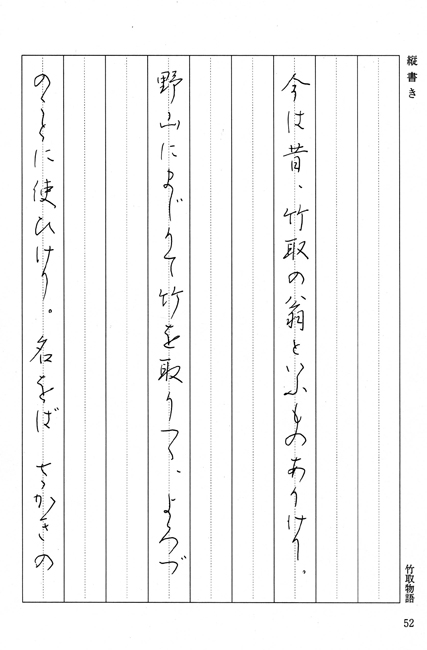 縦書き
今は昔、竹取の翁といふものありけり。
野山にまじりて竹を取りつつ、よろづ
のことに使ひけり。名をば さかきの
竹取物語
52